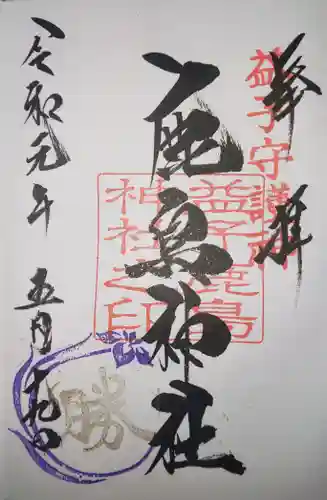 奉拝
益子守護神
鹿島神社
益子鹿島
神社之印
令和元年
五月十九日
勝